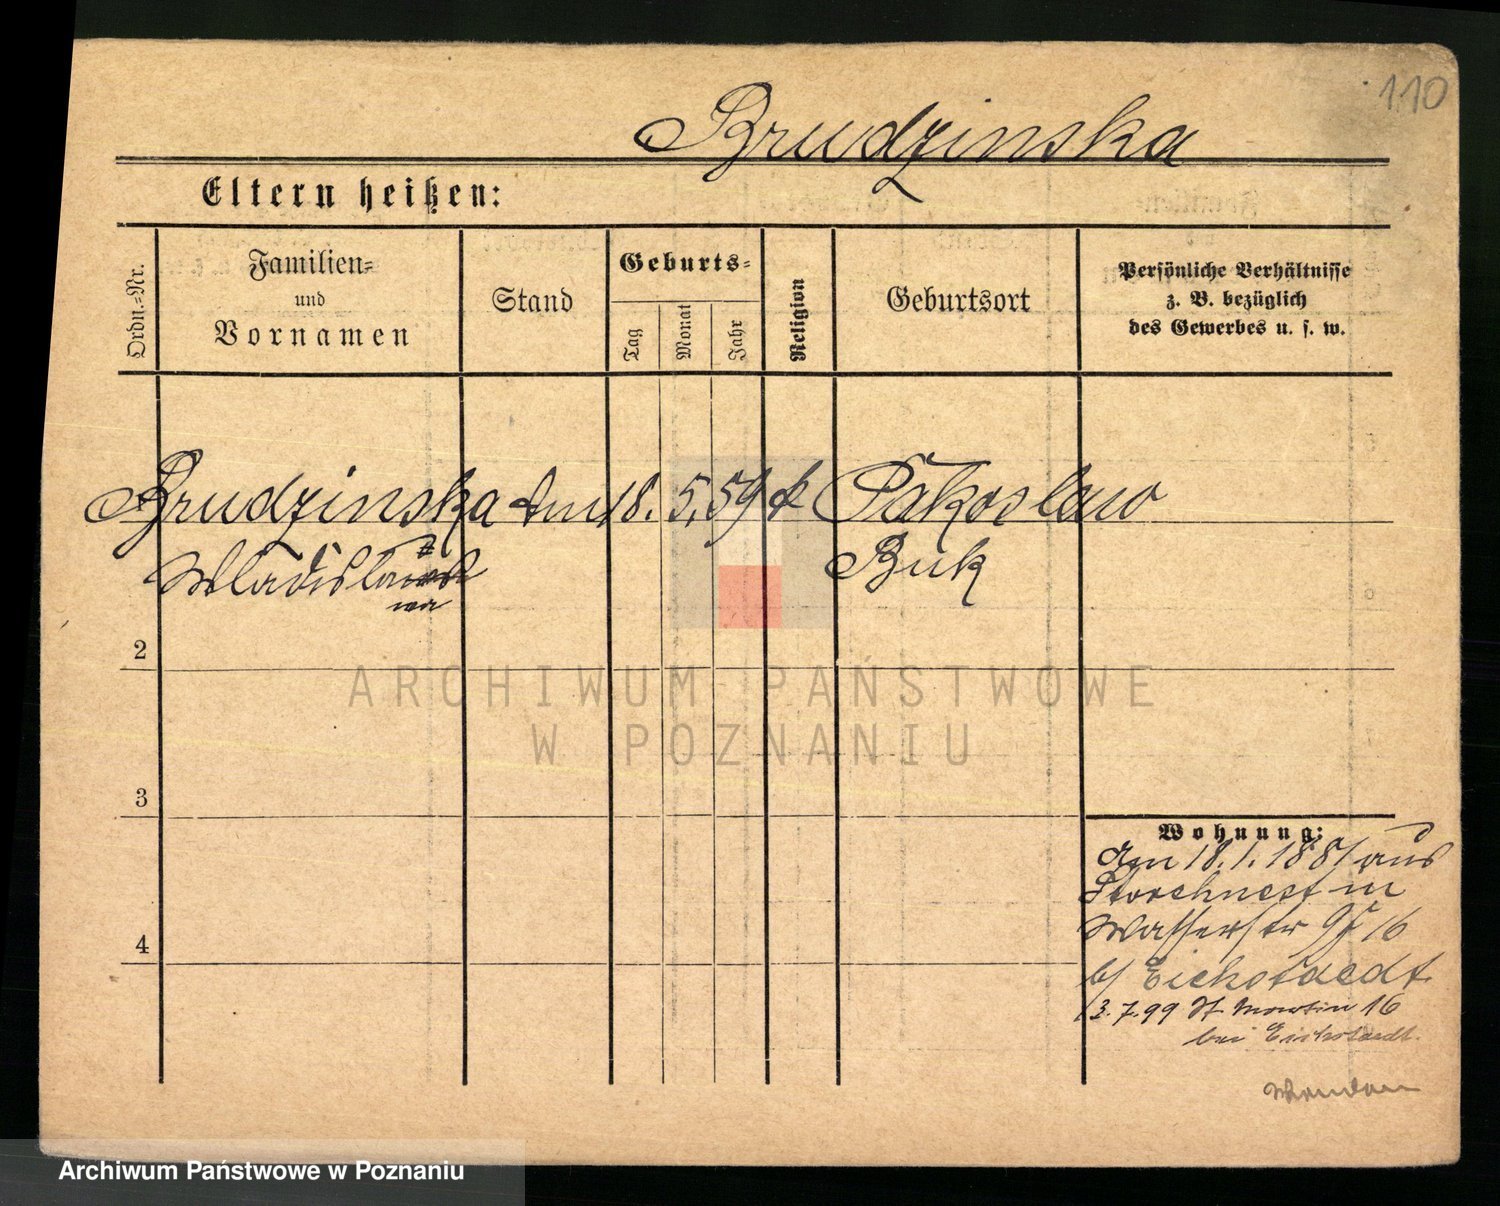 110
Brudzinska
Eltern heißen:
Ordn.-Nr.
Familien-
und
Vornamen
Stand
Geburts-
Tag
Monat
Jahr
Religion
Geburtsort
Persönliche Verhältnisse
z. B. bezüglich
des Gewerbes u. s. w.
Brudzinska 18. 5. 59 k Pakoslaw
Wladislawa Buk
wa
2
ARCHIWUM PAŃSTWOWE
W POZNANIU
3
Wohnung:
Am 18.1.1887 aus
Storchnest in
Wasserstr 16
b/ Eichstaedt
13.7.99 St Martin 16
bei Eichstaedt.
4
Archiwum Państwowe w Poznaniu